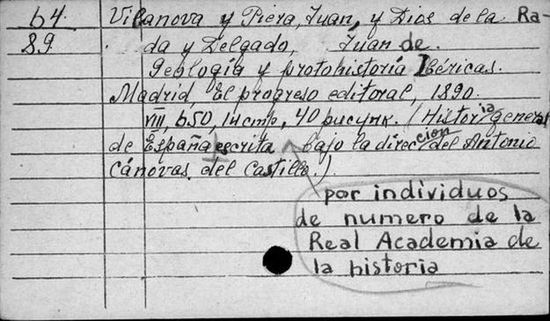 64. Vilanova y Piera, Juan, y Dios de la Ra
89. da y Delgado, Juan de.
Geología y protohistoria Ibéricas.
Madrid, El progreso editoral, 1890.
VIII, 650, 1ысит, 40 рисунк. (Historia general
de España escrita bajo la direccion del Antonio
Cánovas del Castillo.)
por individuos
de numero de la
Real Academia de
la historia